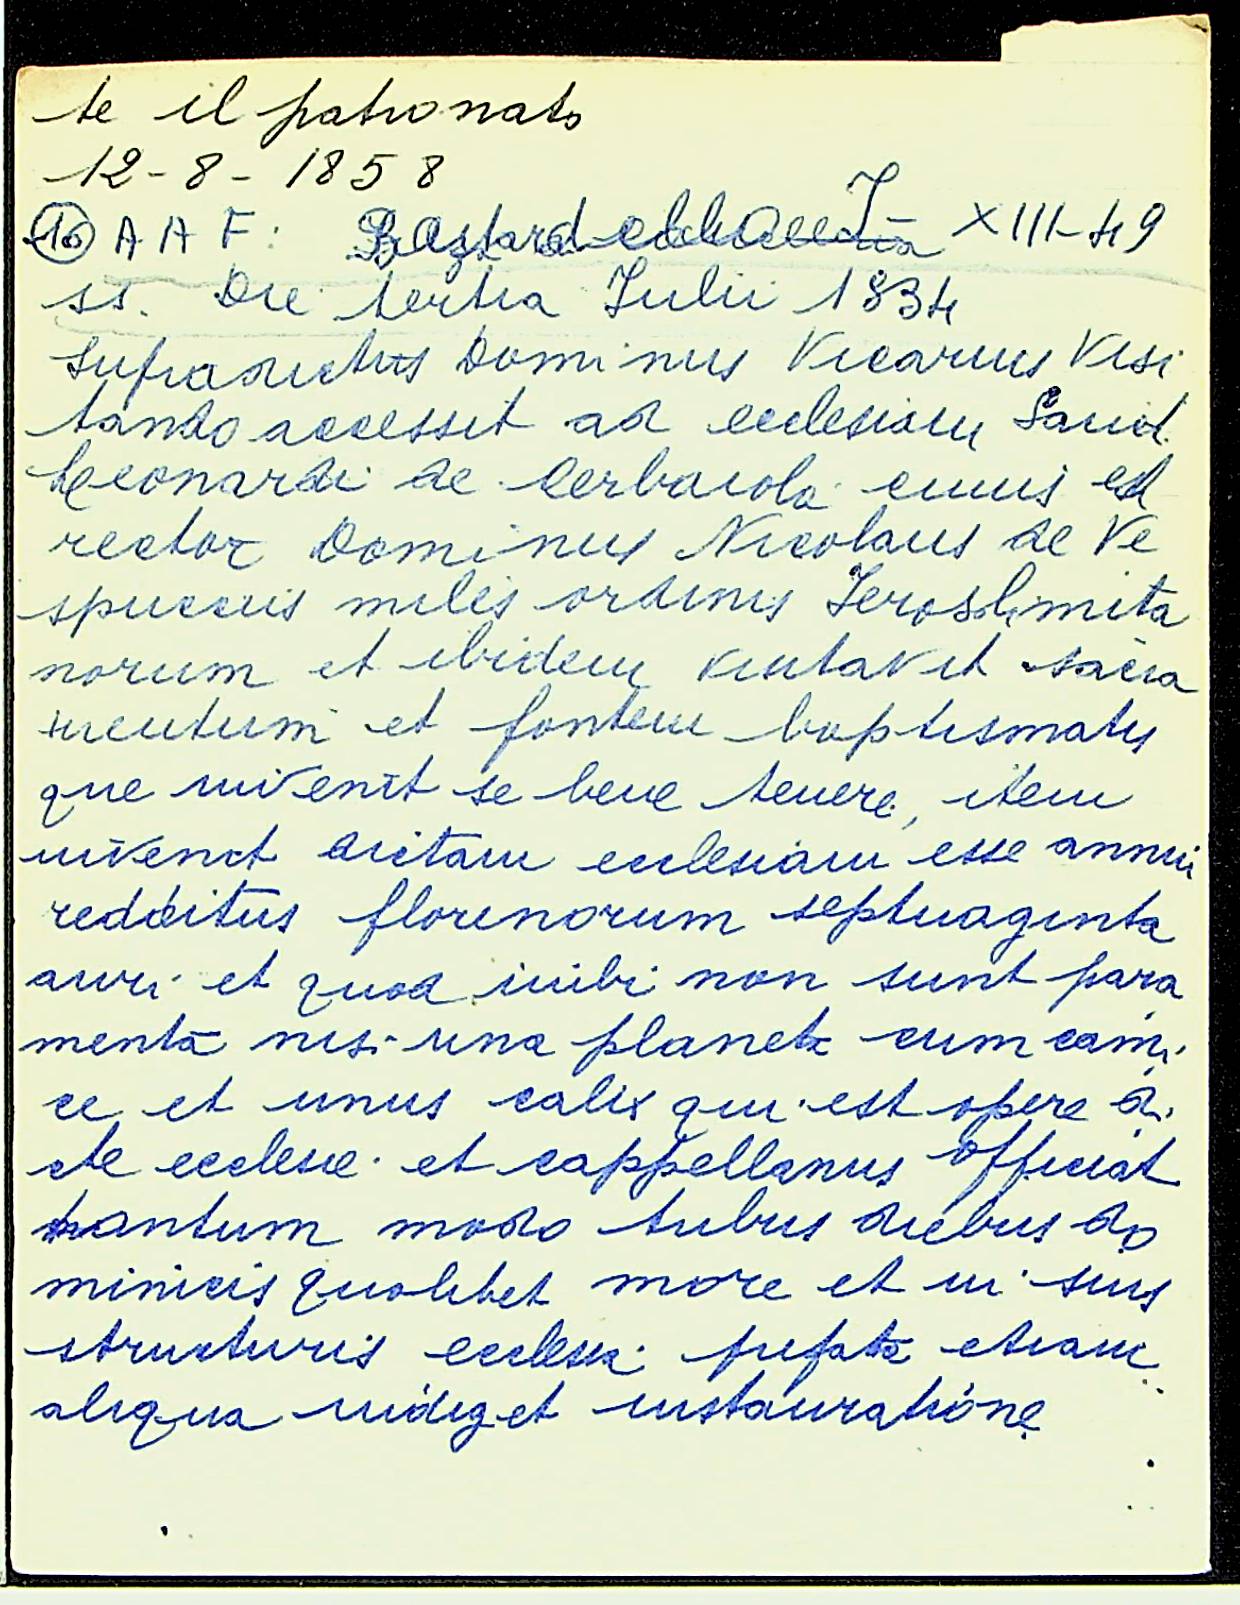 te il patronato
12-8-1858
(10) A A F: XIII-49
ss. Die tertia Julii 1834
Supradictus Dominus Vicarius Visi
tando accessit ad ecclesiam Sancti
Leonardi de Cerbaiola cuius est
rector Dominus Nicolaus de Ve
spucciis miles ordinis Jeroslimita
norum et ibidem visitavit sacra
mentum et fontem baptismatis
que invenit se bene tenere, item
invenit dictam ecclesiam esse annui
redditus florenorum septuaginta
auri et quod inibi non sunt para
menta nisi una planeta cum cami
ce et unus calix qui est opere di
cte ecclesie et cappellanus officiat
tantum modo tribus diebus do
minicis quolibet more et in suis
structuris ecclesia etiam
aliqua indiget instauratione